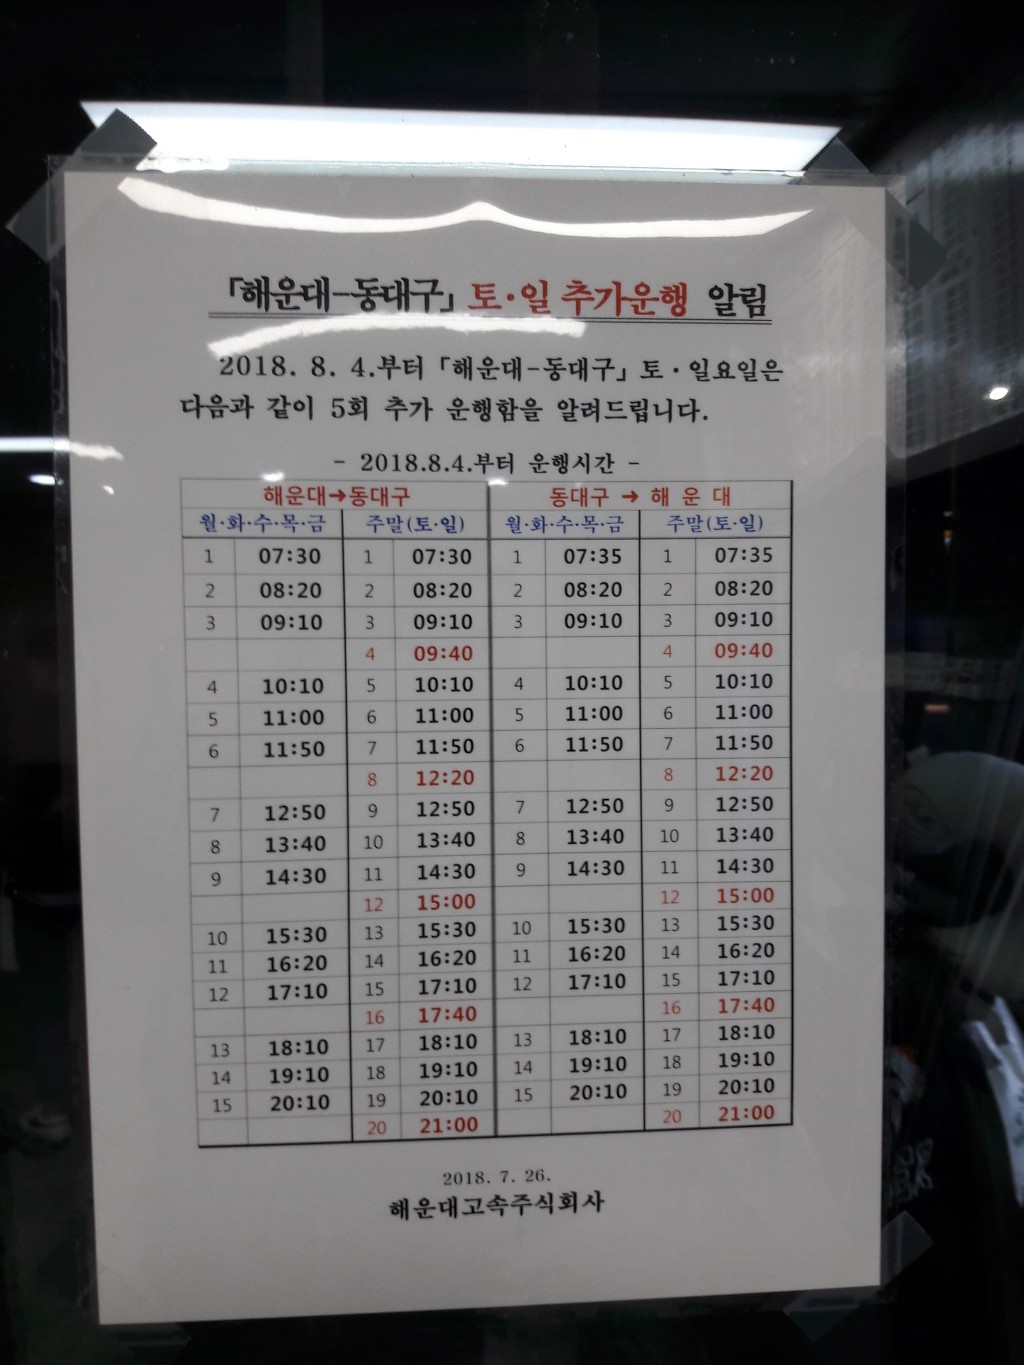 「해운대-동대구」 토·일 추가운행 알림
2018. 8. 4.부터 「해운대-동대구」 토·일요일은
다음과 같이 5회 추가 운행함을 알려드립니다.
- 2018.8.4.부터 운행시간 -
해운대→동대구 동대구 → 해 운 대
월·화·수·목·금 주말(토·일) 월·화·수·목·금 주말(토·일)
1 07:30 1 07:30 1 07:35 1 07:35
2 08:20 2 08:20 2 08:20 2 08:20
3 09:10 3 09:10 3 09:10 3 09:10
4 09:40 4 09:40
4 10:10 5 10:10 4 10:10 5 10:10
5 11:00 6 11:00 5 11:00 6 11:00
6 11:50 7 11:50 6 11:50 7 11:50
8 12:20 8 12:20
7 12:50 9 12:50 7 12:50 9 12:50
8 13:40 10 13:40 8 13:40 10 13:40
9 14:30 11 14:30 9 14:30 11 14:30
12 15:00 12 15:00
10 15:30 13 15:30 10 15:30 13 15:30
11 16:20 14 16:20 11 16:20 14 16:20
12 17:10 15 17:10 12 17:10 15 17:10
16 17:40 16 17:40
13 18:10 17 18:10 13 18:10 17 18:10
14 19:10 18 19:10 14 19:10 18 19:10
15 20:10 19 20:10 15 20:10 19 20:10
20 21:00 20 21:00
2018. 7. 26.
해운대고속주식회사